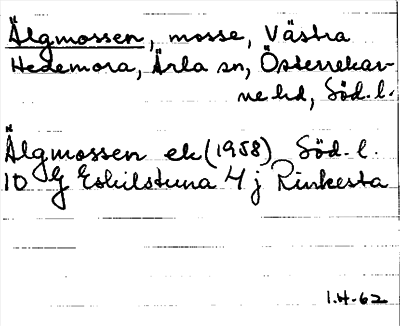 Älgmossen, mosse, Västra
Hedemora, Ärla sn, Österrekar-
ne hd, Söd. l.
Älgmossen ek (1958) Söd. l.
10 G Eskilstuna 4 j Rinkesta
1.H.62